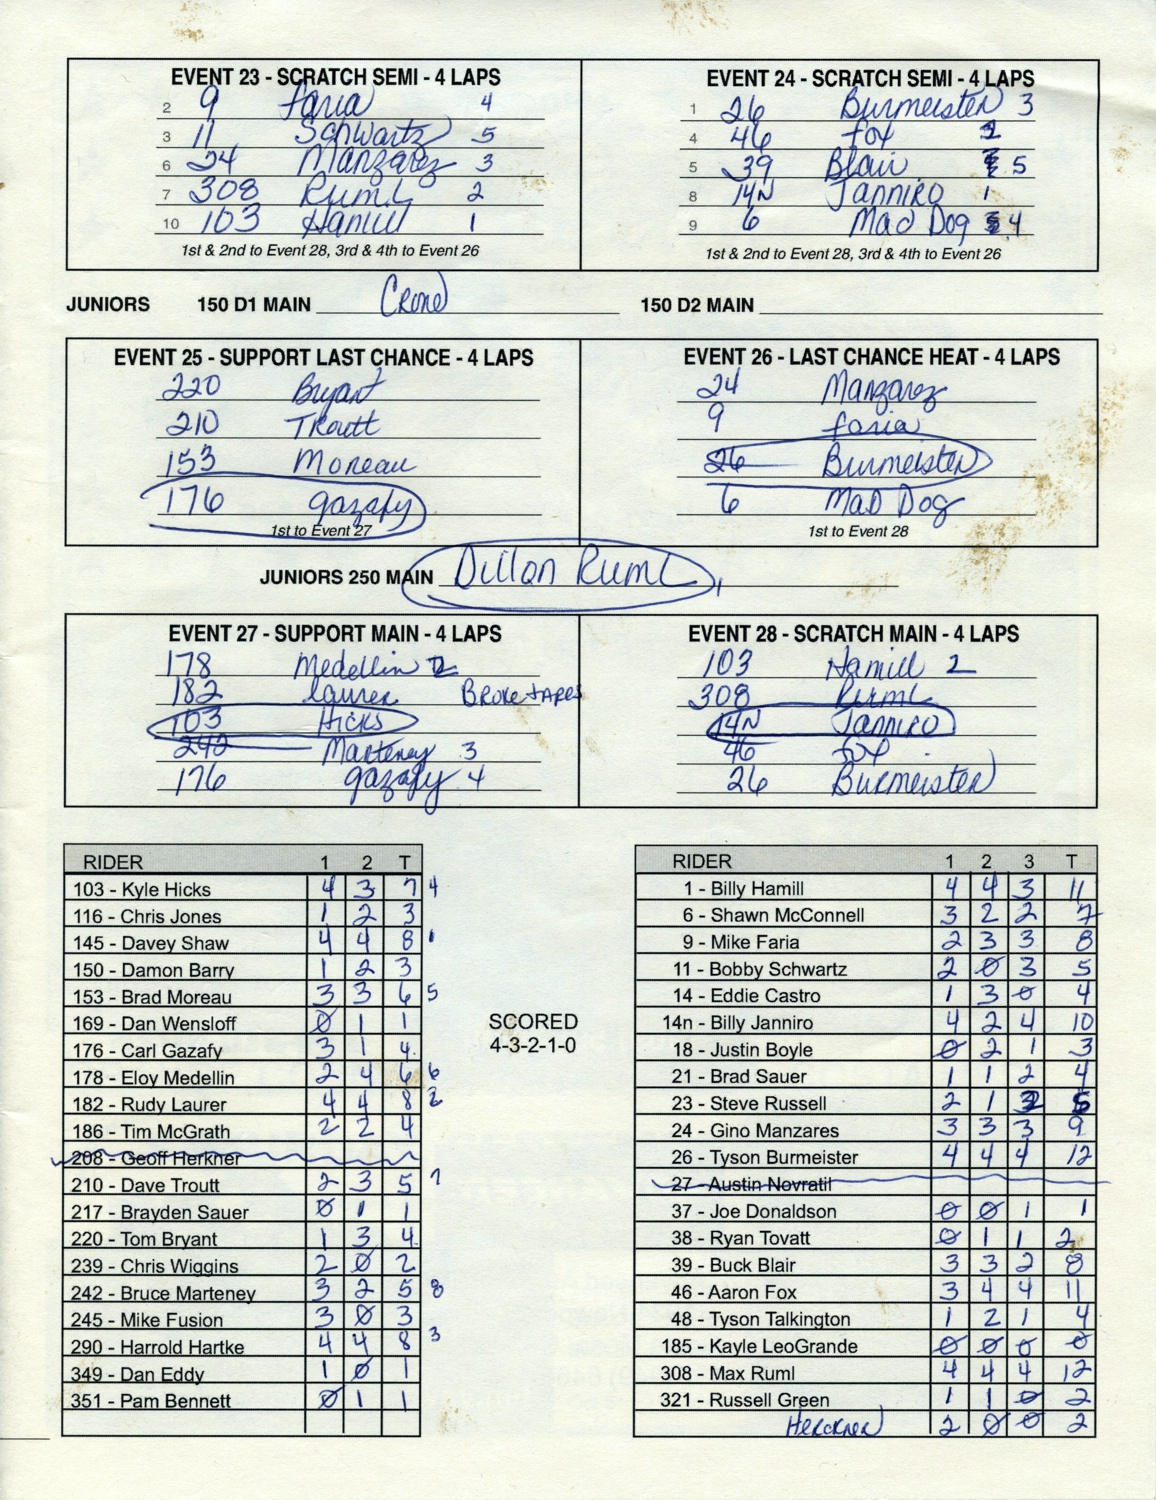 EVENT 23 - SCRATCH SEMI - 4 LAPS
2 9 Faria 4
3 11 Schwartz 5
6 24 Manzarez 3
7 308 Ruml 2
10 103 Hamill 1
1st & 2nd to Event 28, 3rd & 4th to Event 26
EVENT 24 - SCRATCH SEMI - 4 LAPS
1 26 Burmeister 3
4 46 Fox 2
5 39 Blair 5
8 14N Janniro 1
9 6 Mad Dog 4
1st & 2nd to Event 28, 3rd & 4th to Event 26
JUNIORS 150 D1 MAIN Crone 150 D2 MAIN
EVENT 25 - SUPPORT LAST CHANCE - 4 LAPS
220 Bryant
210 Troutt
153 Moreau
176 Gazafy
1st to Event 27
EVENT 26 - LAST CHANCE HEAT - 4 LAPS
24 Manzarez
9 Faria
26 Burmeister
6 Mad Dog
1st to Event 28
JUNIORS 250 MAIN Dillon Ruml
EVENT 27 - SUPPORT MAIN - 4 LAPS
178 Medellin 2
182 Laurer Broke tapes
103 Hicks
242 Marteney 3
176 Gazafy 4
EVENT 28 - SCRATCH MAIN - 4 LAPS
103 Hamill 2
308 Ruml
14N Janniro
46 Fox
26 Burmeister
RIDER 1 2 T
103 - Kyle Hicks 4 3 7 4
116 - Chris Jones 1 2 3
145 - Davey Shaw 4 4 8 1
150 - Damon Barry 1 2 3
153 - Brad Moreau 3 3 6 5
169 - Dan Wensloff 0 1 1
176 - Carl Gazafy 3 1 4
178 - Eloy Medellin 2 4 6 6
182 - Rudy Laurer 4 4 8 2
186 - Tim McGrath 2 2 4
208 - Geoff Herkner
210 - Dave Troutt 2 3 5 7
217 - Brayden Sauer 0 1 1
220 - Tom Bryant 1 3 4
239 - Chris Wiggins 2 0 2
242 - Bruce Marteney 3 2 5 8
245 - Mike Fusion 3 0 3
290 - Harrold Hartke 4 4 8 3
349 - Dan Eddy 1 0 1
351 - Pam Bennett 0 1 1
SCORED
4-3-2-1-0
RIDER 1 2 3 T
1 - Billy Hamill 4 4 3 11
6 - Shawn McConnell 3 2 2 7
9 - Mike Faria 2 3 3 8
11 - Bobby Schwartz 2 0 3 5
14 - Eddie Castro 1 3 0 4
14n - Billy Janniro 4 2 4 10
18 - Justin Boyle 0 2 1 3
21 - Brad Sauer 1 1 2 4
23 - Steve Russell 2 1 2 5
24 - Gino Manzares 3 3 3 9
26 - Tyson Burmeister 4 4 4 12
27 - Austin Novratil
37 - Joe Donaldson 0 0 1 1
38 - Ryan Tovatt 0 1 1 2
39 - Buck Blair 3 3 2 8
46 - Aaron Fox 3 4 4 11
48 - Tyson Talkington 1 2 1 4
185 - Kayle LeoGrande 0 0 0 0
308 - Max Ruml 4 4 4 12
321 - Russell Green 1 1 0 2
Herckner 2 0 0 2